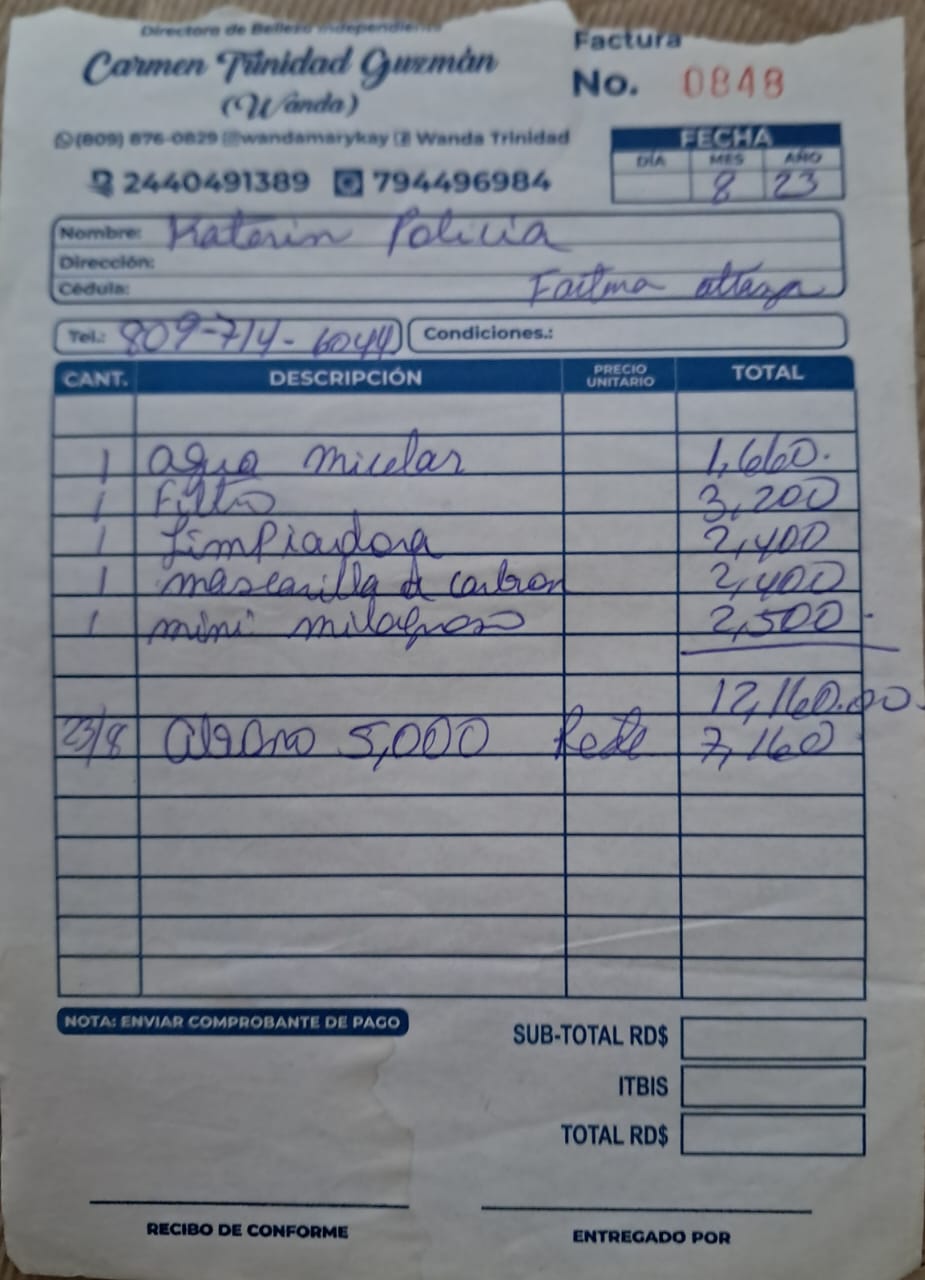 Directora de Belleza Independiente
Carmen Trinidad Guzmán
(Wanda)
(809) 876-0829 wandamarykay Wanda Trinidad
2440491389 794496984
Factura
No. 0848
FECHA
DÍA MES AÑO
8 23
Nombre: Katerin Policia
Dirección:
Cédula:
Tel.: 809-714-6044 Condiciones.:
CANT. DESCRIPCIÓN PRECIO UNITARIO TOTAL
1 agua micelar 1,660.
1 Filtro 3,200
1 Limpiadora 2,400
1 mascarilla d carbon 2,400
1 mini milagroso 2,500
12,160.00
23/8 5,000 7,160
NOTA: ENVIAR COMPROBANTE DE PAGO
SUB-TOTAL RD$
ITBIS
TOTAL RD$
RECIBO DE CONFORME
ENTREGADO POR